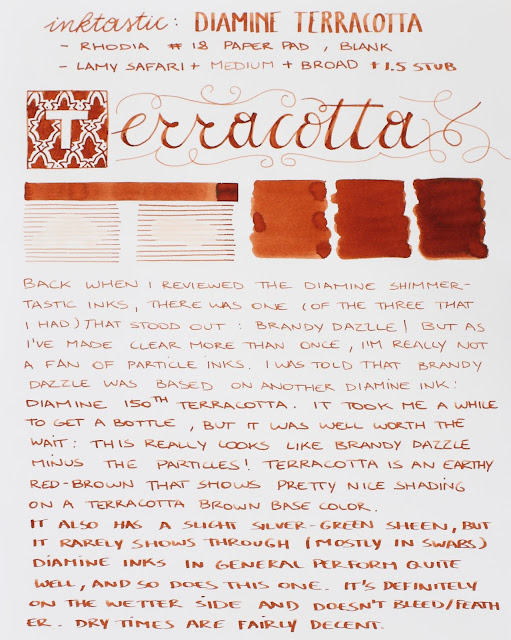 inktastic: DIAMINE TERRACOTTA
- RHODIA # 18 PAPER PAD, BLANK
- LAMY SAFARI + MEDIUM + BROAD + 1.5 STUB
Terracotta
BACK WHEN I REVIEWED THE DIAMINE SHIMMER-
TASTIC INKS, THERE WAS ONE (OF THE THREE THAT
I HAD) THAT STOOD OUT: BRANDY DAZZLE! BUT AS
I'VE MADE CLEAR MORE THAN ONCE, I'M REALLY NOT
A FAN OF PARTICLE INKS. I WAS TOLD THAT BRANDY
DAZZLE WAS BASED ON ANOTHER DIAMINE INK:
DIAMINE 150TH TERRACOTTA. IT TOOK ME A WHILE
TO GET A BOTTLE, BUT IT WAS WELL WORTH THE
WAIT: THIS REALLY LOOKS LIKE BRANDY DAZZLE
MINUS THE PARTICLES! TERRACOTTA IS AN EARTHY
RED-BROWN THAT SHOWS PRETTY NICE SHADING
ON A TERRACOTTA BROWN BASE COLOR.
IT ALSO HAS A SLIGHT SILVER-GREEN SHEEN, BUT
IT RARELY SHOWS THROUGH (MOSTLY IN SWABS)
DIAMINE INKS IN GENERAL PERFORM QUITE
WELL, AND SO DOES THIS ONE. IT'S DEFINITELY
ON THE WETTER SIDE AND DOESN'T BLEED/FEATH
ER. DRY TIMES ARE FAIRLY DECENT.